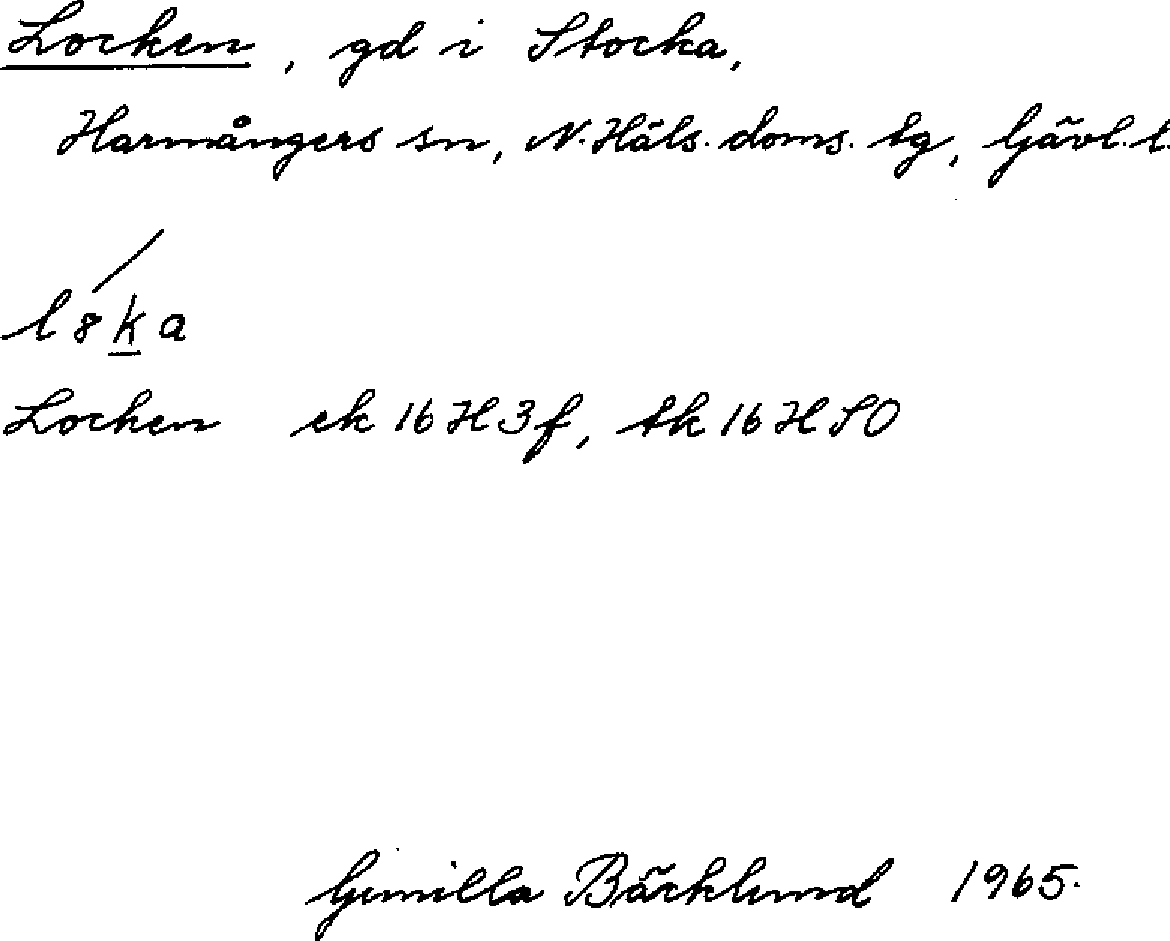 Locken, gd i Stocka,
Harmångers sn, N. Häls. doms. tg, Gävl. l.
l8ka
Locken ek 16H3f, tk 16HSO
Gunilla Bäcklund 1965.